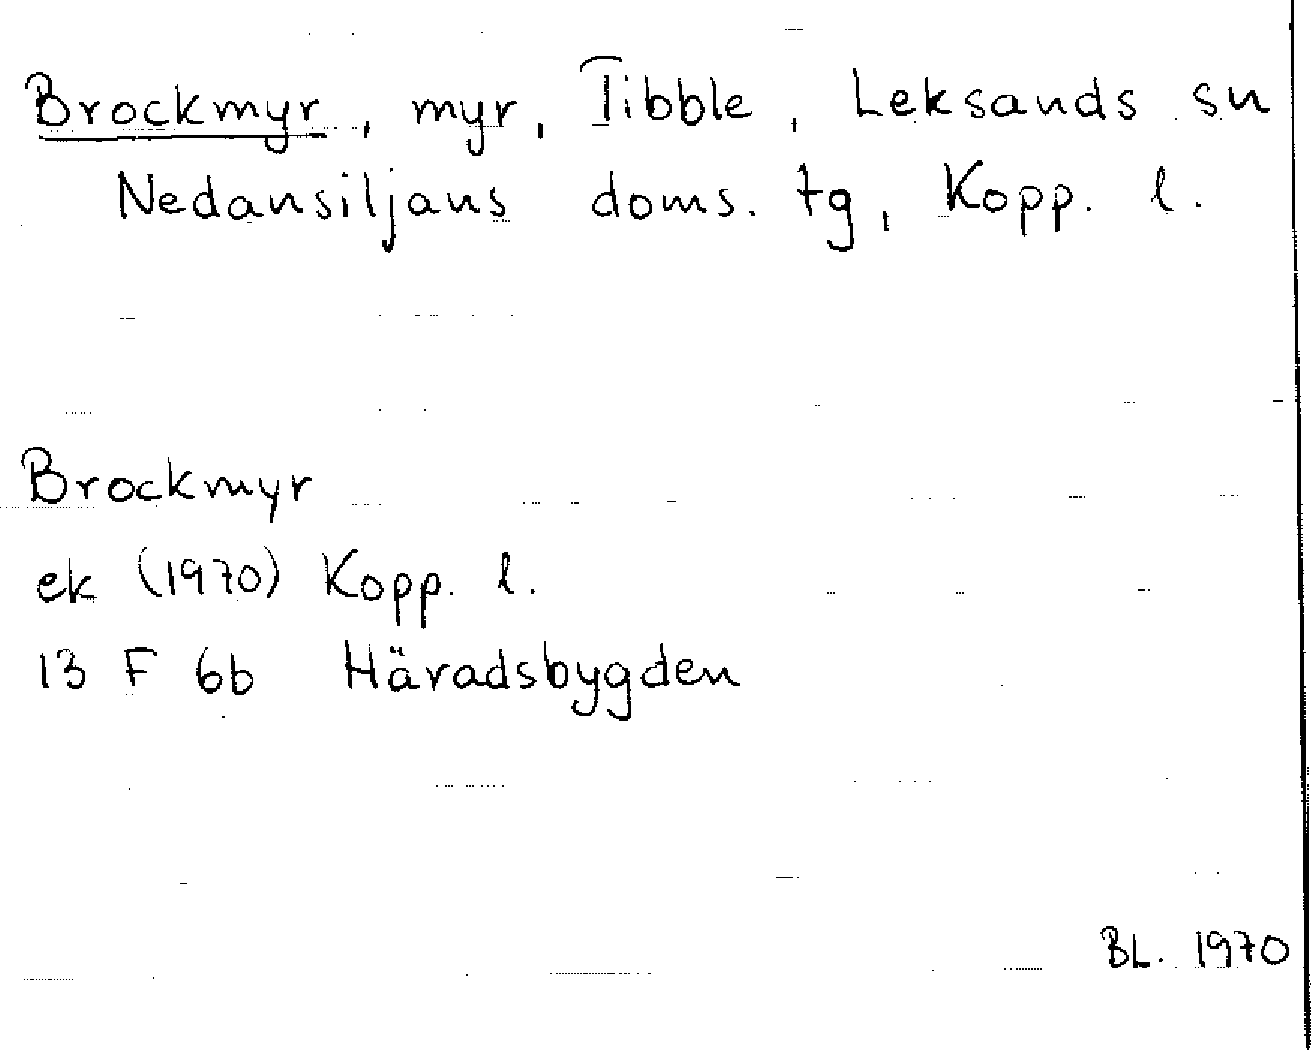 Brockmyr, myr, Tibble, Leksands sn
Nedansiljans doms. tg, Kopp. l.
Brockmyr
ek (1970) Kopp. l.
13 F 6b Häradsbygden
BL. 1970